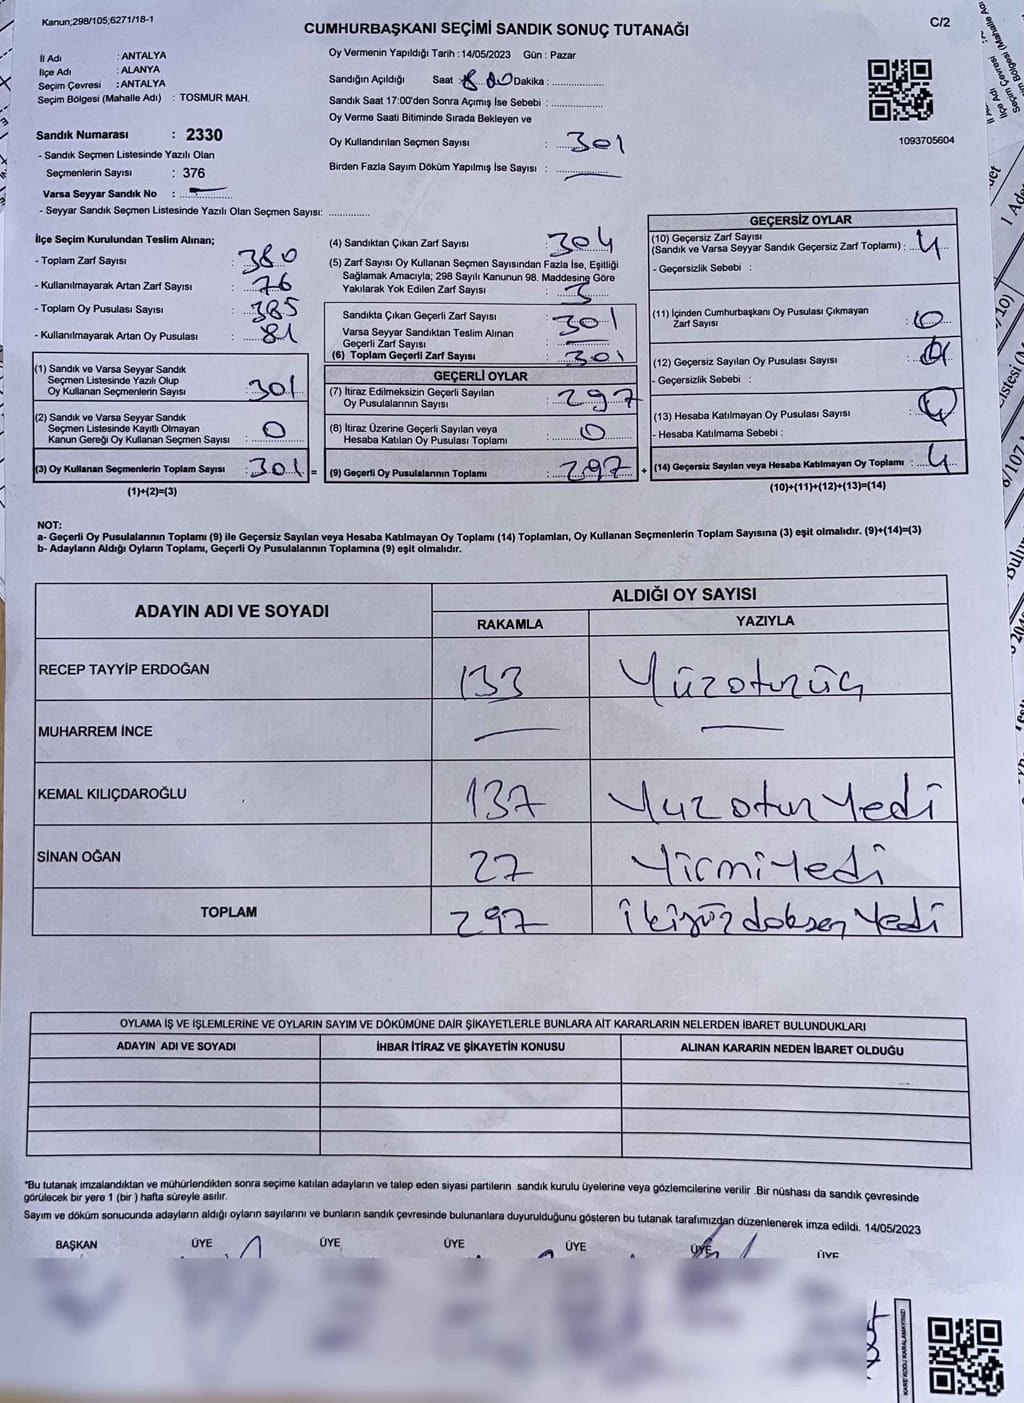 Kanun;298/105,6271/18-1
C/2
CUMHURBAŞKANI SEÇİMİ SANDIK SONUÇ TUTANAĞI
İl Adı : ANTALYA
İlçe Adı : ALANYA
Seçim Çevresi : ANTALYA
Seçim Bölgesi (Mahalle Adı) : TOSMUR MAH.
Sandık Numarası : 2330
- Sandık Seçmen Listesinde Yazılı Olan
Seçmenlerin Sayısı : 376
Varsa Seyyar Sandık No : —
- Seyyar Sandık Seçmen Listesinde Yazılı Olan Seçmen Sayısı: ..............
Oy Vermenin Yapıldığı Tarih : 14/05/2023 Gün : Pazar
Sandığın Açıldığı Saat : 8.00 Dakika : ..................
Sandık Saat 17:00'den Sonra Açımış İse Sebebi : ..................
Oy Verme Saati Bitiminde Sırada Bekleyen ve
Oy Kullandırılan Seçmen Sayısı : 301
Birden Fazla Sayım Döküm Yapılmış İse Sayısı : —
1093705604
İlçe Seçim Kurulundan Teslim Alınan;
- Toplam Zarf Sayısı : 380
- Kullanılmayarak Artan Zarf Sayısı : 76
- Toplam Oy Pusulası Sayısı : 385
- Kullanılmayarak Artan Oy Pusulası : 81
(1) Sandık ve Varsa Seyyar Sandık
Seçmen Listesinde Yazılı Olup
Oy Kullanan Seçmenlerin Sayısı : 301
(2) Sandık ve Varsa Seyyar Sandık
Seçmen Listesinde Kayıtlı Olmayan
Kanun Gereği Oy Kullanan Seçmen Sayısı : 0
(3) Oy Kullanan Seçmenlerin Toplam Sayısı : 301 =
(1)+(2)=(3)
(4) Sandıktan Çıkan Zarf Sayısı : 304
(5) Zarf Sayısı Oy Kullanan Seçmen Sayısından Fazla İse, Eşitliği
Sağlamak Amacıyla; 298 Sayılı Kanunun 98. Maddesine Göre
Yakılarak Yok Edilen Zarf Sayısı : 3
Sandıkta Çıkan Geçerli Zarf Sayısı : 301
Varsa Seyyar Sandıktan Teslim Alınan
Geçerli Zarf Sayısı : —
(6) Toplam Geçerli Zarf Sayısı : 301
GEÇERLİ OYLAR
(7) İtiraz Edilmeksizin Geçerli Sayılan
Oy Pusulalarının Sayısı : 297
(8) İtiraz Üzerine Geçerli Sayılan veya
Hesaba Katılan Oy Pusulası Toplamı : 0
(9) Geçerli Oy Pusulalarının Toplamı : 297 +
GEÇERSİZ OYLAR
(10) Geçersiz Zarf Sayısı
(Sandık ve Varsa Seyyar Sandık Geçersiz Zarf Toplamı) : 4
- Geçersizlik Sebebi :
(11) İçinden Cumhurbaşkanı Oy Pusulası Çıkmayan
Zarf Sayısı : 0
(12) Geçersiz Sayılan Oy Pusulası Sayısı :
- Geçersizlik Sebebi :
(13) Hesaba Katılmayan Oy Pusulası Sayısı :
- Hesaba Katılmama Sebebi :
(14) Geçersiz Sayılan veya Hesaba Katılmayan Oy Toplamı : 4
(10)+(11)+(12)+(13)=(14)
NOT:
a- Geçerli Oy Pusulalarının Toplamı (9) ile Geçersiz Sayılan veya Hesaba Katılmayan Oy Toplamı (14) Toplamları, Oy Kullanan Seçmenlerin Toplam Sayısına (3) eşit olmalıdır. (9)+(14)=(3)
b- Adayların Aldığı Oyların Toplamı, Geçerli Oy Pusulalarının Toplamına (9) eşit olmalıdır.
ADAYIN ADI VE SOYADI
ALDIĞI OY SAYISI
RAKAMLA YAZIYLA
RECEP TAYYİP ERDOĞAN 133 Yüzotuzüç
MUHARREM İNCE — —
KEMAL KILIÇDAROĞLU 137 Yuzotuz Yedi
SİNAN OĞAN 27 Yirmi Yedi
TOPLAM 297 İkiyüz doksan Yedi
OYLAMA İŞ VE İŞLEMLERİNE VE OYLARIN SAYIM VE DÖKÜMÜNE DAİR ŞİKAYETLERLE BUNLARA AİT KARARLARIN NELERDEN İBARET BULUNDUKLARI
ADAYIN ADI VE SOYADI İHBAR İTİRAZ VE ŞİKAYETİN KONUSU ALINAN KARARIN NEDEN İBARET OLDUĞU
"Bu tutanak imzalandıktan ve mühürlendikten sonra seçime katılan adayların ve talep eden siyasi partilerin sandık kurulu üyelerine veya gözlemcilerine verilir .Bir nüshası da sandık çevresinde
görülecek bir yere 1 (bir ) hafta süreyle asılır.
Sayım ve döküm sonucunda adayların aldığı oyların sayılarını ve bunların sandık çevresinde bulunanlara duyurulduğunu gösteren bu tutanak tarafımızdan düzenlenerek imza edildi. 14/05/2023
BAŞKAN ÜYE ÜYE ÜYE ÜYE ÜYE ÜYE
KARE KODU KARALAMAYINIZ!